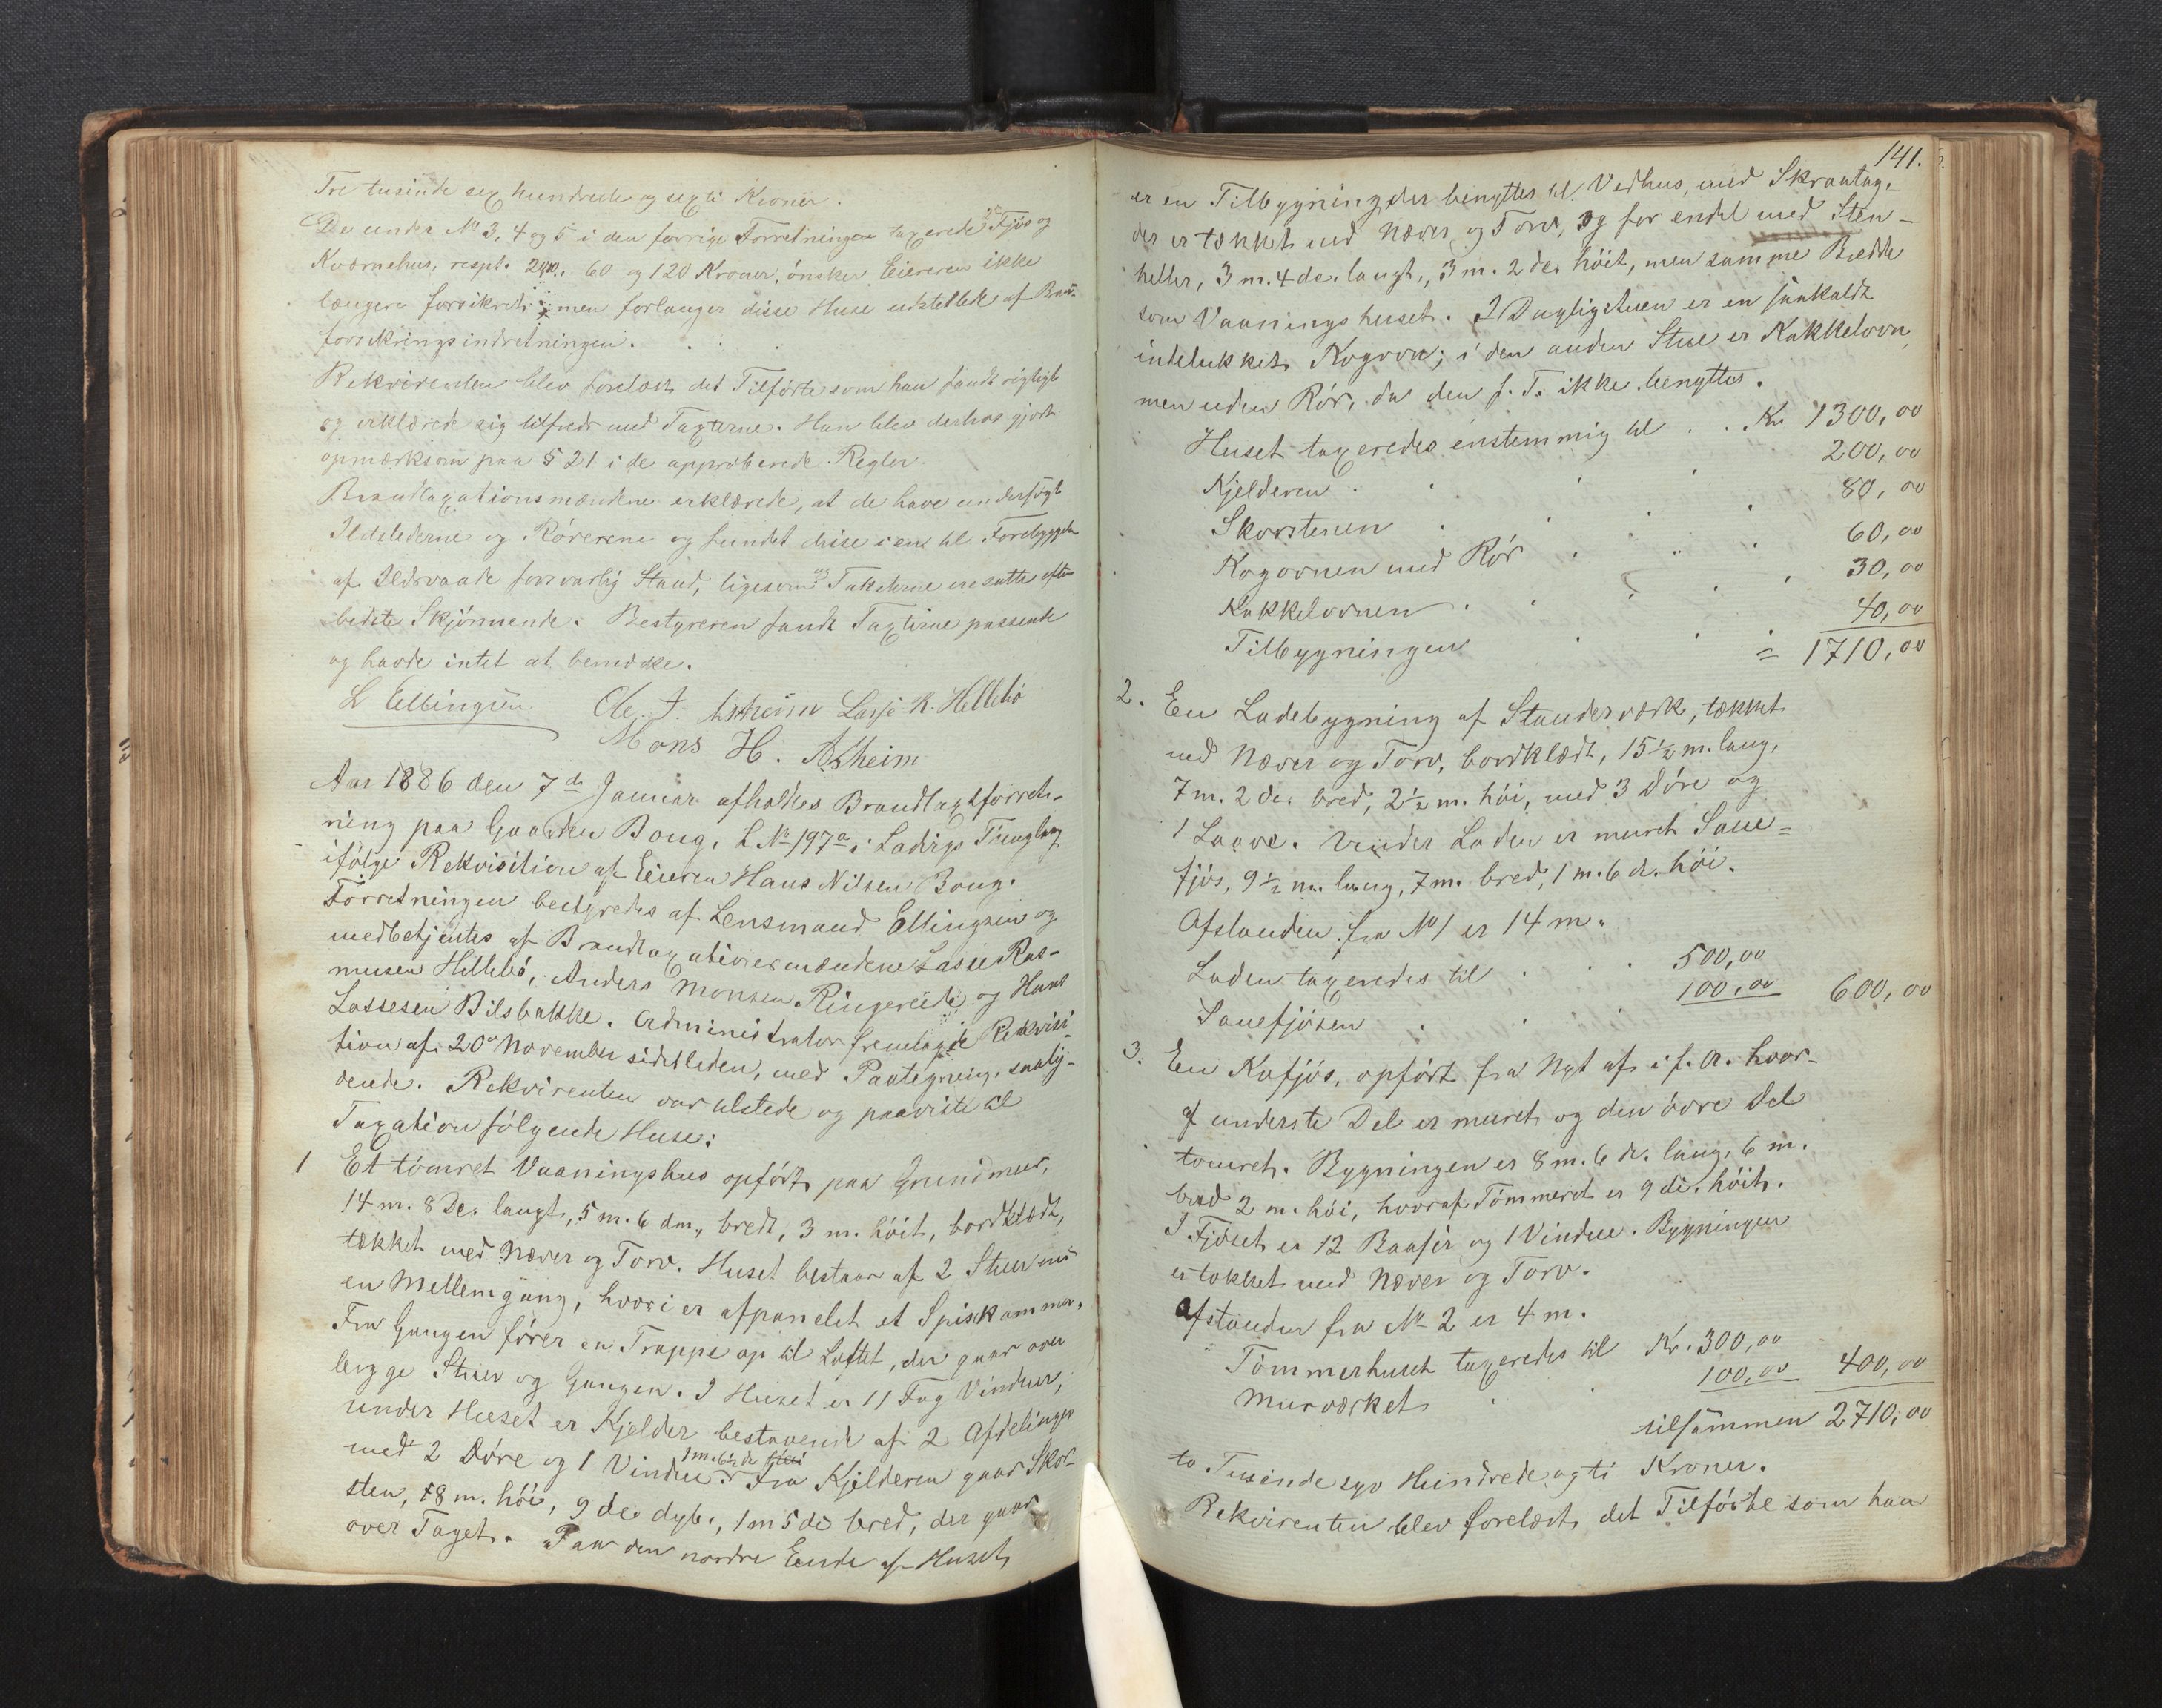 Tre tusinde sex hundrede og sexti Kroner.
De under No 3, 4 og 5 i den forrige Forretningen taxerede 2de Fjös og
Kværnehus, respt. 60 og 120 Kroner, önsker Eiereren ikke
længere forsikrede men forlanger disse Huse udslettede af Brand-
forsikringsindretningen.
Rekvirenten blev forelæst det Tilförte som han fandt rigtigt
og erklærede sig tilfreds med Taxterne. Han blev derhos gjort
opmærksom paa § 21 i de approberede Regler.
Brandtaxationsmændene erklærede, at de have undersögt
Ildstederne og Rörerene og fundet disse i en til Forebyggelse
af Ildsvaade forsvarlig Stand, ligesom og Taksterne ere satte efter
bedste Skjönnende. Bestyreren fandt Taxterne passende
og havde intet at bemærke.
L Ellingsen Ole J. Askheim Lasse R. Hillebö
Mons H. Askheim
Aar 1886 den 7de Januar afholdtes Brandtaxtforret-
ning paa Gaarden Boug, L No 197a i Ladvigs Thinglag
ifölge Rekvisition af Eieren Hans Nilsen Boug.
Forretningen bestyredes af Lensmand Ellingsen og
medbetjentes af Brandtaxationsmændene Lasse Ras-
musen Hillebö, Anders Monsen Ringereide og Hans
Lassesen Bilsbakke. Administrator fremlagde Rekvisi-
tion af 20de November sidstleden, med Paategning, saaly-
dende. Rekvirenten var tilstede og paaviste til
Taxation fölgende Huse:
1 Et tömret Vaaningshus opfört paa Grundmur,
14 m. 8 De. langt, 5 m. 6 dm., bredt, 3 m. höit, bordklædt,
tækket med Næver og Torv. Huset bestaar af 2 Stuer med
en Mellemgang, hvori er afpanelet et Spiskammer.
Fra Gangen förer en Trappe op til Loftet, der gaar over
begge Stuer og Gangen. I Huset er 11 Fag Vinduer,
under Huset er Kjelder bestaaende af 2 Afdelinger
med 2 Döre og 1 Vindue. Fra Kjelderen gaar Skor-
sten, 8 m. höi, 9 de. dyb., 1 m 5 de bred, der gaar
over Taget. Paa den nordre Ende af Huset
141.
er en Tilbygning der benyttes til Vedhus, med Skraatag,
der er tækket med Næver og Torv, og for endel med Sten-
heller, 3 m. 4 de. langt, 3 m. 2 de. höit, men samme Bredde
som Vaaningshuset. I Dagligstuen er en saakaldt
indelukket Kogovn; i den anden Stue er Kakkelovn
men uden Rör, da den f. T. ikke benyttes.
Huset taxeredes enstemmig til . . Kr 1300,00
Kjelderen . . . 200,00
Skorstenen . . . 80,00
Kogovnen med Rör . . . 60,00
Kakkelovnen . . . 30,00
Tilbygningen . . . 40,00
= 1710,00
2. En Ladebygning af Standerværk, tækket
med Næver og Torv, bordklædt, 15½ m. lang,
7 m. 2 de. bred, 2½ m. höi, med 3 Döre og
1 Laave. Under Laden er muret Saue-
fjös, 9½ m. lang, 7 m. bred, 1 m. 6 de. höi.
Afstanden fra No 1 er 14 m.
Laden taxeredes til . . . 500,00
Sauefjösen . . . 100,00 600,00
3. En Kufjös, opfört fra Nyt af i f. A. hvor-
af underste Del er muret og den övre Del
tömret. Bygningen er 8 m. 6 de. lang, 6 m.
bred 2 m. höi, hvoraf Tömmeret er 9 de. höit.
I Fjöset er 12 Baaser og 1 Vindue. Bygningen
er tækket med Næver og Torv.
Afstanden fra No 2 er 4 m.
Tömmerhuset taxeredes til Kr. 300,00
Murværket . 100,00 400,00
tilsammen 2710,00
to Tusinde syv Hundrede og ti Kroner.
Rekvirenten blev forelæst det Tilförte som han